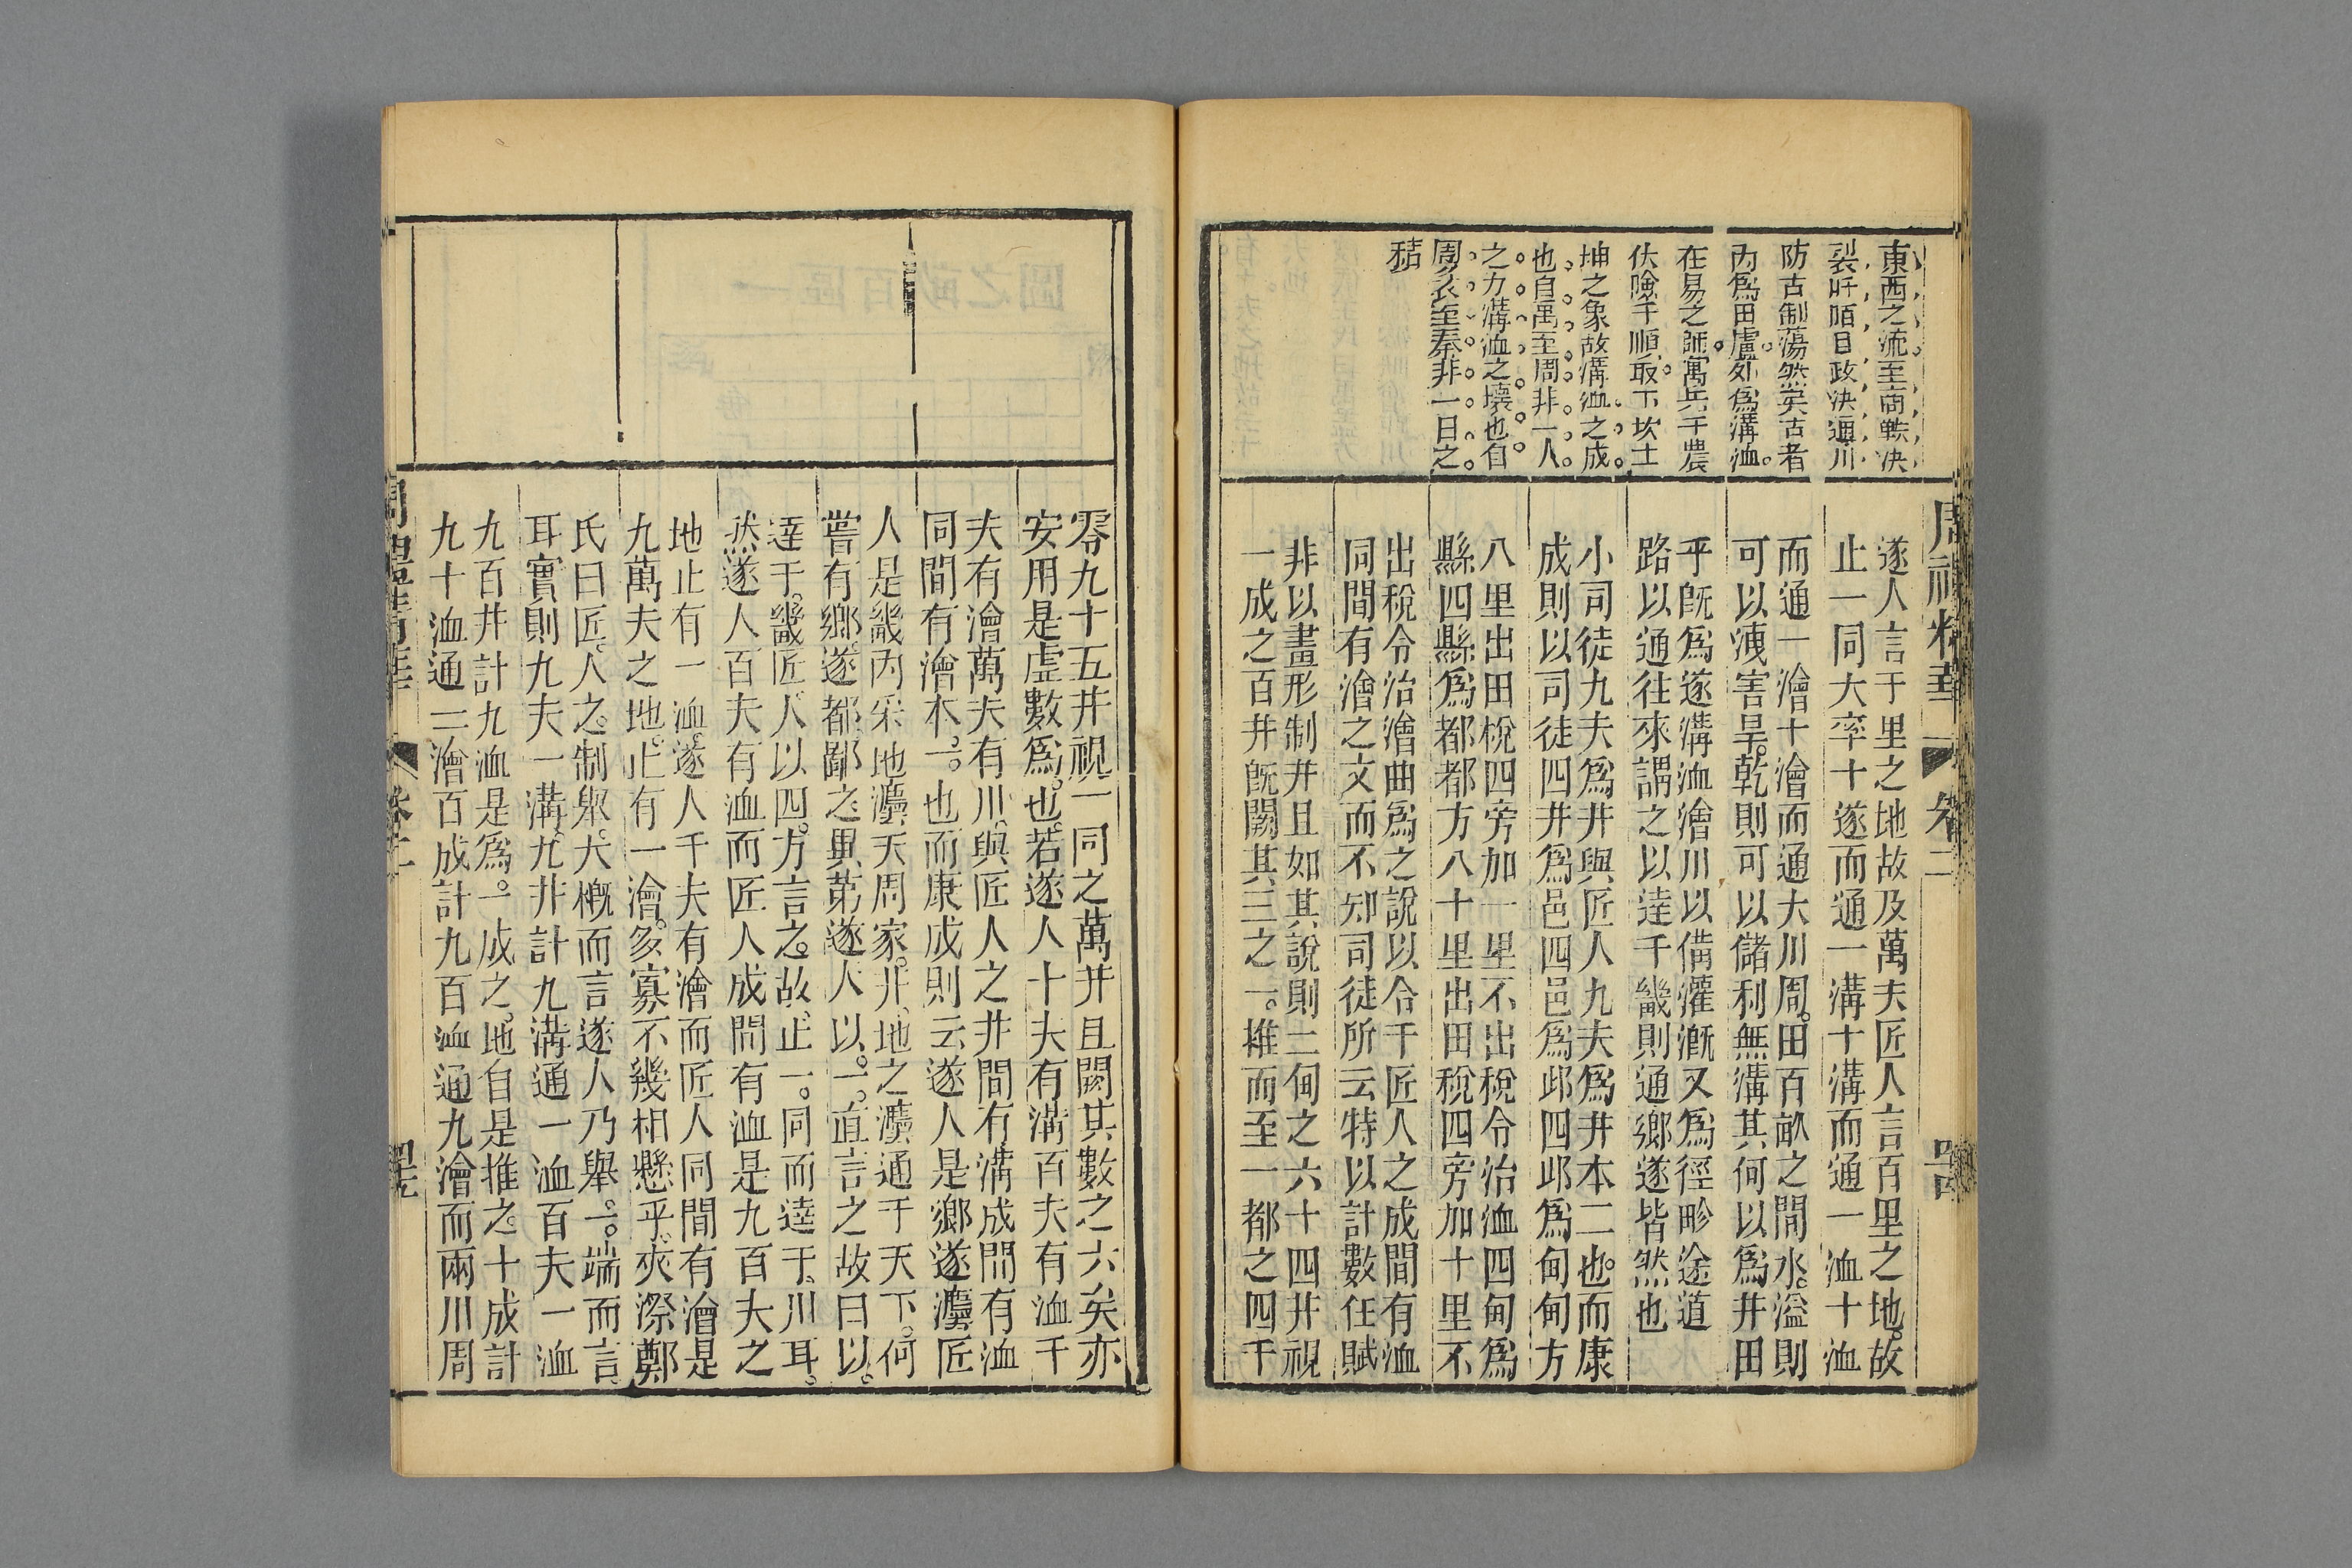 東西之流至商鞅决
裂阡陌日政决通川
防古制蕩然矣古者
内爲田廬外爲溝洫
在易之師寓兵于農
伏險于順取下坎上
坤之象故溝洫之成
也自禹至周非一人
之力溝洫之壞也自
周衰至秦非一日之
積
周禮精華
卷二
遂人言于里之地故及萬夫匠人言百里之地故
止一同大率十遂而通一溝十溝而通一洫十洫
而通一澮十澮而通大川周田百畝之間水溢則
可以洩害旱乾則可以儲利無溝其何以爲井田
乎旣爲遂溝洫澮川以備灌漑又爲徑畛途道
路以通往來謂之以達千畿則通鄉遂皆然也
小司徒九夫爲井與匠人九夫爲井本二也而康
成則以司徒四井爲邑四邑爲邱四邱爲甸甸方
八里出田稅四旁加一里不出稅令治洫四甸爲
縣四縣爲都都方八十里出田稅四旁加十里不
出稅令治澮曲爲之說以合于匠人之成間有洫
同間有澮之文而不知司徒所云特以計數任賦
非以畫形制井且如其說則二甸之六十四井視
一成之百井旣闕其三之一推而至一都之四千
零九十五井視一同之萬井且闕其數之六矣亦
安用是虛數爲也若遂人十夫有溝百夫有洫千
夫有澮萬夫有川與匠人之井間有溝成間有洫
同間有澮本一也而康成則云遂人是鄉遂灋匠
人是畿内采地灋夫周家井地之灋通于天下何
嘗有鄉遂都鄙之異第遂人以一直言之故曰以
達于畿匠人以四方言之故止一同而達于川耳
然遂人百夫有洫而匠人成間有洫是九百夫之
地止有一洫遂人千夫有澮而匠人同間有澮是
九萬夫之地止有一澮多寡不幾相懸乎夾漈鄭
氏曰匠人之制舉大概而言遂人乃舉一端而言
耳實則九夫一溝九井計九溝通一洫百夫一洫
九百井計九洫是爲一成之地自是推之十成計
九十洫通二澮百成計九百洫通九澮而兩川周
周禮精華
卷二